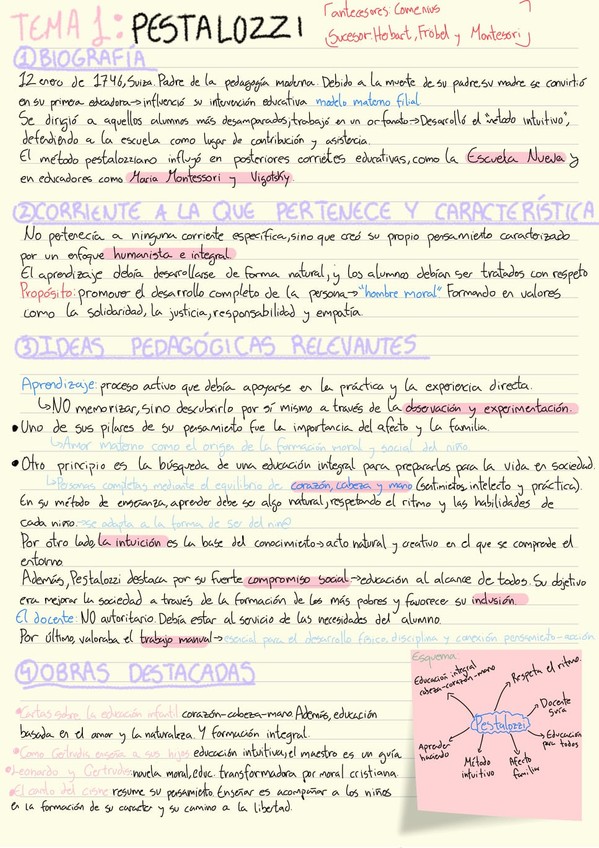 TEMA 1: PESTALOZZI
antecesores: Comenius
Sucesor: Hobart, Fröbel y Montessori
1 BIOGRAFÍA
12 enero de 1746, Suiza. Padre de la pedagogía moderna. Debido a la muerte de su padre, su madre se convirtió
en su primera educadora→influenció su intervención educativa modelo materno filial
Se dirigió a aquellos alumnos más desamparados, trabajó en un orfanato→Desarrolló el "método intuitivo",
defendiendo a la escuela como lugar de contribución y asistencia.
El método pestalozziano influyó en posteriores corrietes educativas, como la Escuela Nueva y
en educadores como Maria Montessori y Vigotsky.
2 CORRIENTE A LA QUE PERTENECE Y CARACTERÍSTICA
No petenecía a ninguna corriente específica, sino que creó su propio pensamiento caracterizado
por un enfoque humanista e integral.
El aprendizaje debía desarrollarse de forma natural, y los alumnos debían ser tratados con respeto
Propósito: promover el desarrollo completo de la persona→"hombre moral". Formando en valores
como la solidaridad, la justicia, responsabilidad y empatía.
3 IDEAS PEDAGÓGICAS RELEVANTES
Aprendizaje: proceso activo que debía apoyarse en la práctica y la experiencia directa.
↳NO memorizar, sino descubrirlo por sí mismo a través de la observación y experimentación.
•Uno de sus pilares de su pensamiento fue la importancia del afecto y la familia.
↳Amor materno como el origen de la formación moral y social del niño.
•Otro principio es la búsqueda de una educación integral para prepararlos para la vida en sociedad.
↳Personas completas mediante el equilibrio de corazón, cabeza y mano (sentimietos, intelecto y práctica).
En su método de enseñanza, aprender debe ser algo natural, respetando el ritmo y las habilidades de
cada niño.→se adapta a la forma de ser del niñ@
Por otro lado, la intuición es la base del conocimiento→acto natural y creativo en el que se comprende el
entorno.
Además, Pestalozzi destaca por su fuerte compromiso social→educación al alcance de todos. Su objetivo
era mejorar la sociedad a través de la formación de los más pobres y favorece su inclusión.
El docente: NO autoritario. Debía estar al servicio de las necesidades del alumno.
Por último, valoraba el trabajo manual→esencial para el desarrollo físico, disciplina y conexión pensamiento-acción
4 OBRAS DESTACADAS
•Cartas sobre la educación infantil corazón-cabeza-mano. Además, educación
basada en el amor y la naturaleza. Y formación integral.
•Como Gertrudis enseña a sus hijos: educación intuitiva, el maestro es un guía
•Leonardo y Gertrudis: novela moral, educ. transformadora por moral cristiana.
•El canto del cisne resume su pensamiento. Enseñar es acompañar a los niños
en la formación de su caracter y su camino a la libertad.
Esquema
Educación integral
cabeza-corazón-mano
Respeta el ritmo.
Docente
guía
Pestalozzi
Educación
para todos
Aprender
haciendo
Método
intuitivo
Afecto
familiar